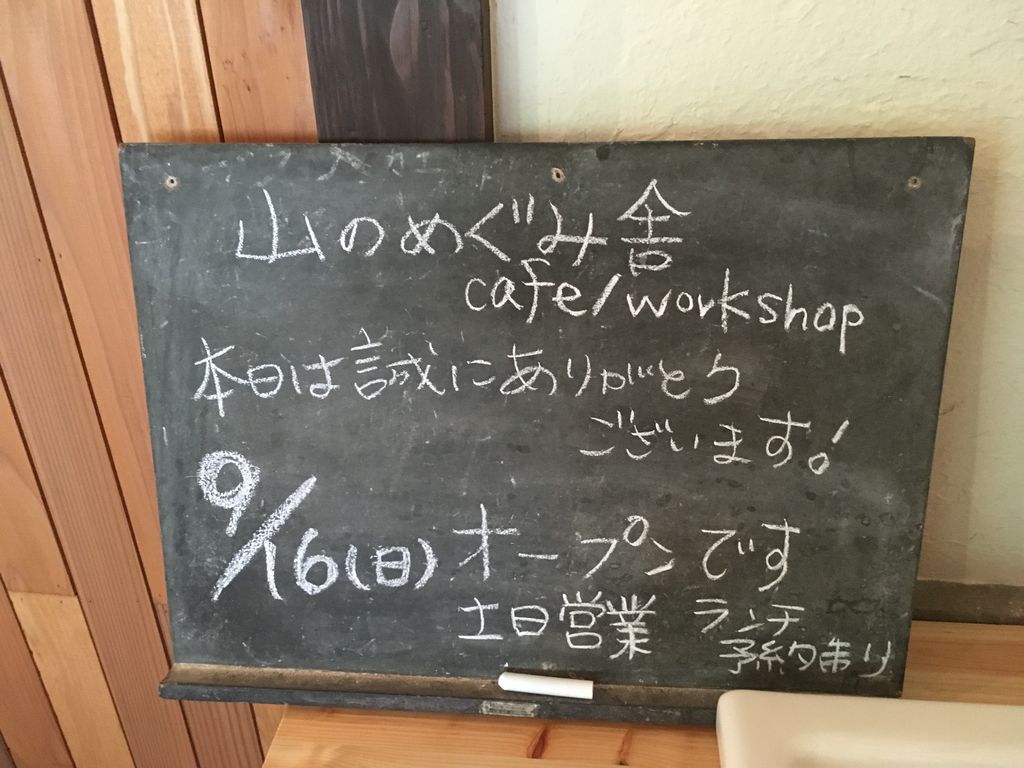 山のめぐみ舎
cafe/workshop
本日は誠にありがとう
ございます!
9/16(日) オープンです
土日営業 ランチ
予約